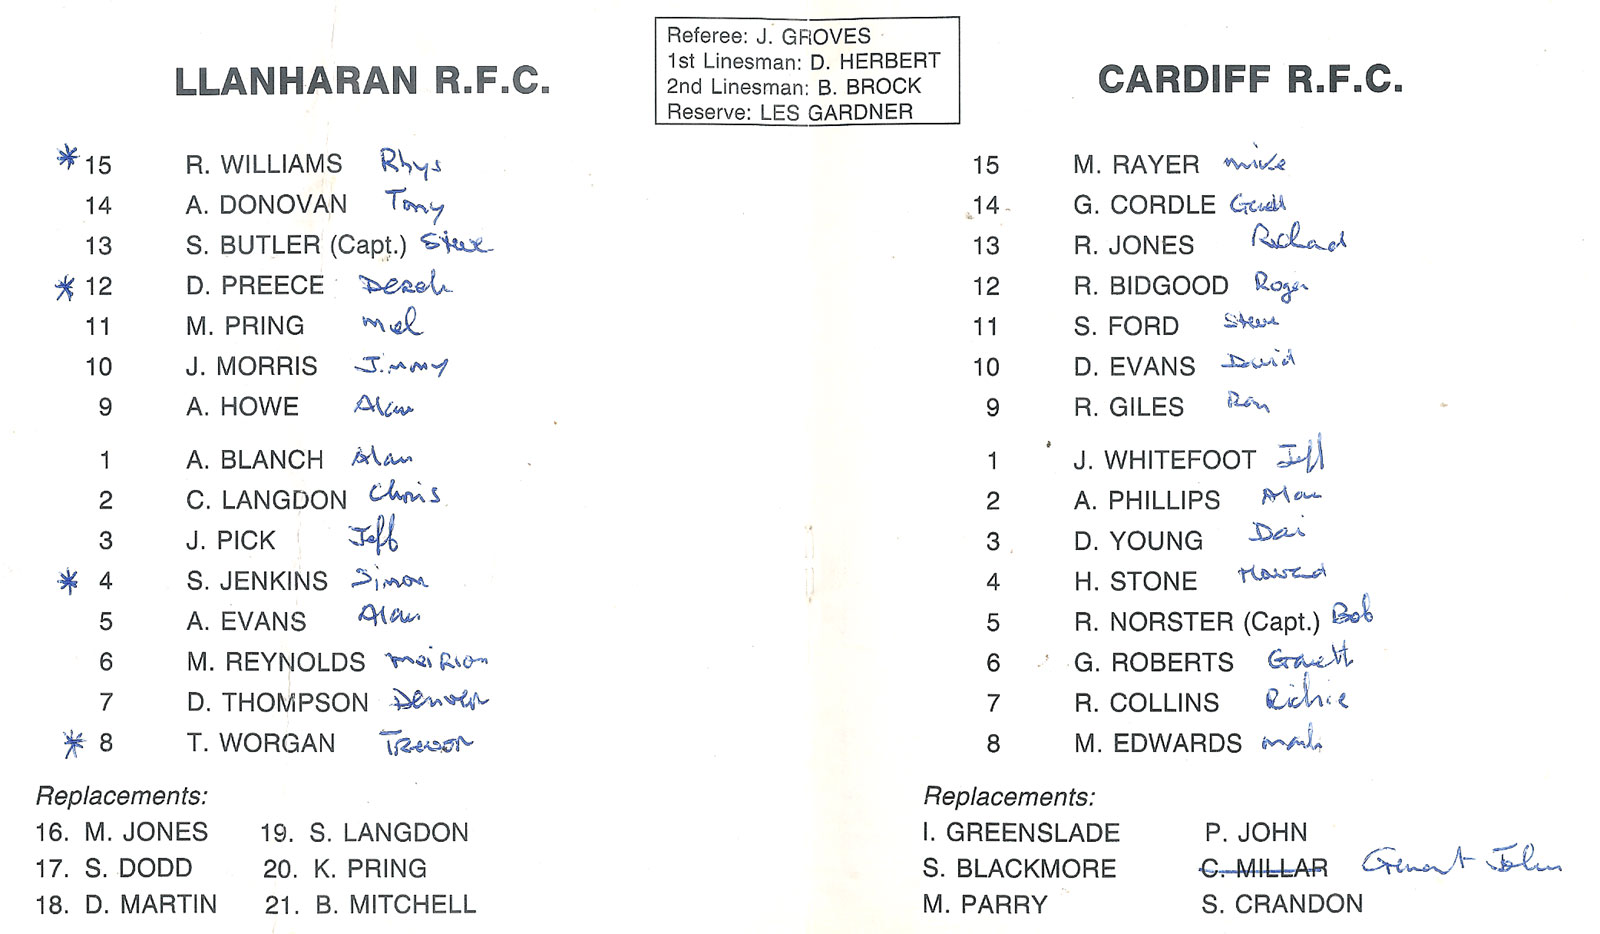 Referee: J. GROVES
1st Linesman: D. HERBERT
2nd Linesman: B. BROCK
Reserve: LES GARDNER
LLANHARAN R.F.C.
* 15 R. WILLIAMS Rhys
14 A. DONOVAN Tony
13 S. BUTLER (Capt.) Steve
* 12 D. PREECE Derek
11 M. PRING Mel
10 J. MORRIS Jimmy
9 A. HOWE Alan
1 A. BLANCH Alan
2 C. LANGDON Chris
3 J. PICK Jeff
* 4 S. JENKINS Simon
5 A. EVANS Alan
6 M. REYNOLDS Meirion
7 D. THOMPSON Denver
* 8 T. WORGAN Trevor
Replacements:
16. M. JONES 19. S. LANGDON
17. S. DODD 20. K. PRING
18. D. MARTIN 21. B. MITCHELL
CARDIFF R.F.C.
15 M. RAYER mike
14 G. CORDLE
13 R. JONES Richard
12 R. BIDGOOD Roger
11 S. FORD Steve
10 D. EVANS David
9 R. GILES
1 J. WHITEFOOT Jeff
2 A. PHILLIPS Alan
3 D. YOUNG Dai
4 H. STONE Howard
5 R. NORSTER (Capt.) Bob
6 G. ROBERTS Gareth
7 R. COLLINS Richie
8 M. EDWARDS mark
Replacements:
I. GREENSLADE P. JOHN
S. BLACKMORE C. MILLAR John
M. PARRY S. CRANDON